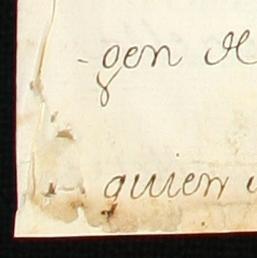 -gen de
quien